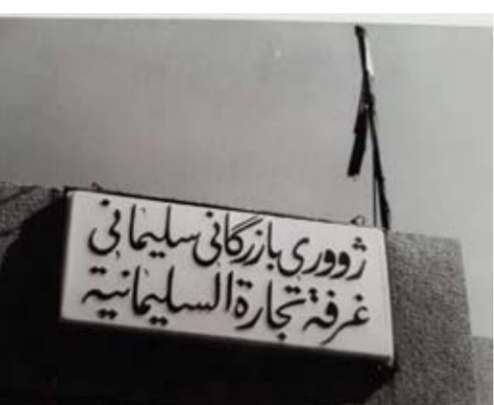 ژووری بازرگانی سلیمانی
غرفة تجارة السليمانية